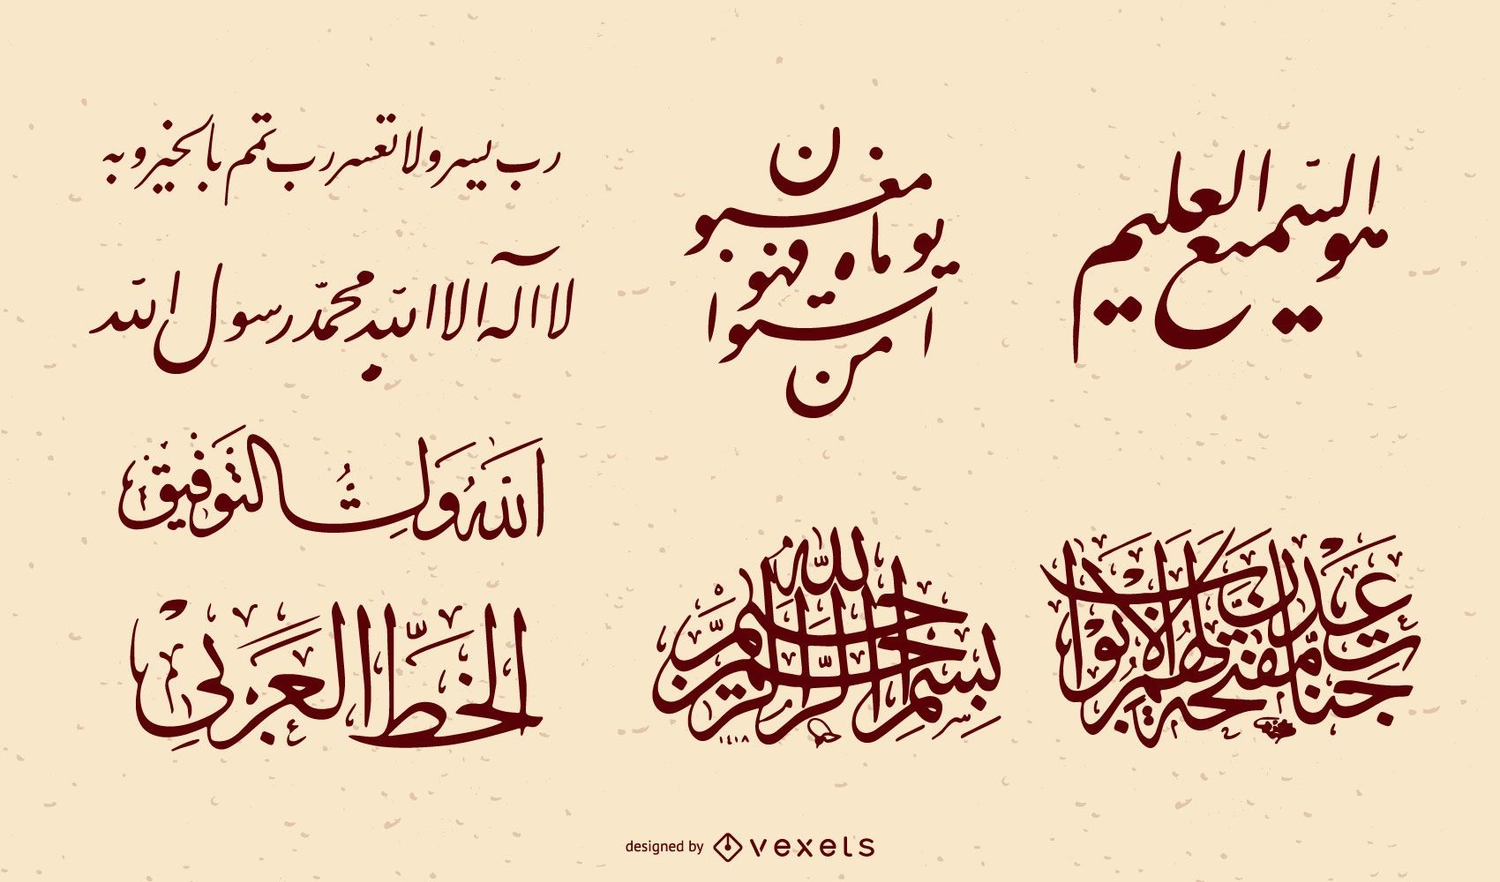 رب يسر ولا تعسر رب تمم بالخير وبه
لا اله الا الله محمّد رسول الله
الله ولي التوفيق
الخطّ العربي
من استوا يوماه فهو مغبون
هو السّميع العليم
بسم الله الرحمن الرحيم
١٤١٨
جنات عدن مفتحة لهم الأبواب
designed by vexels